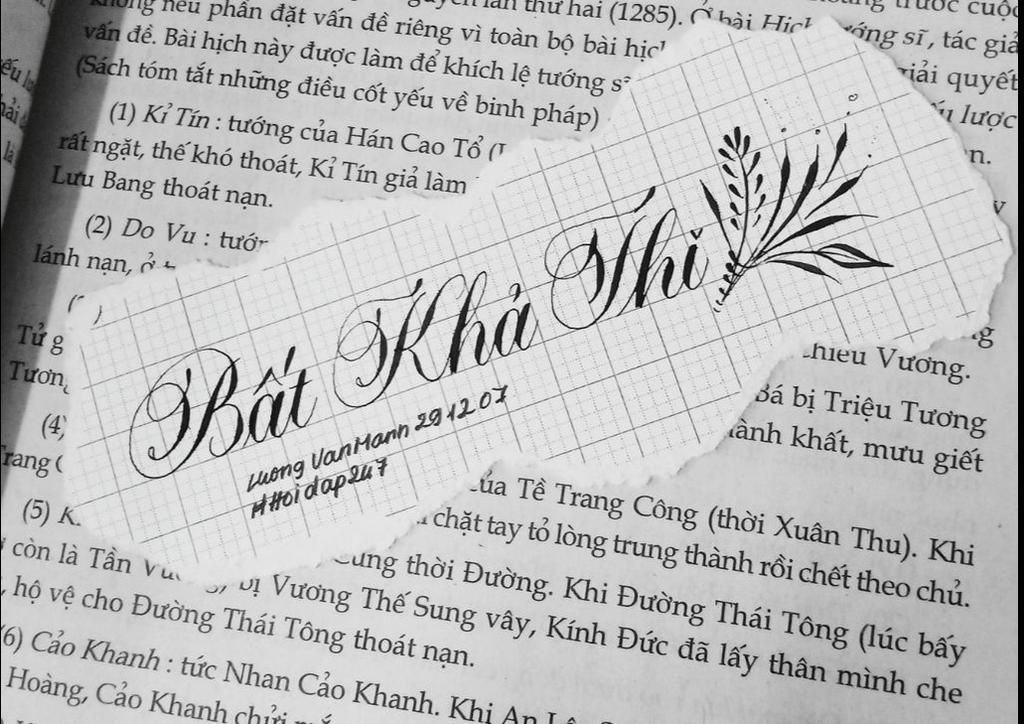 không nêu phần đặt vấn đề riêng vì toàn bộ bài hịch
lần thứ hai (1285). Ở bài Hịch tướng sĩ, tác giả
vấn đề. Bài hịch này được làm để khích lệ tướng
giải quyết
(Sách tóm tắt những điều cốt yếu về binh pháp)
lược
(1) Kỉ Tín : tướng của Hán Cao Tổ
rất ngặt, thế khó thoát, Kỉ Tín giả làm
Lưu Bang thoát nạn.
(2) Do Vu :
lánh nạn, ở
Bất Khả Thi
Luong Van Manh 29 12 07
#Hoidap247
Tử
Vương.
Bá bị Triệu Tương
(4)
hành khất, mưu giết
Trang
của Tề Trang Công (thời Xuân Thu). Khi
(5)
chặt tay tỏ lòng trung thành rồi chết theo chủ.
còn là Tần
thời Đường. Khi Đường Thái Tông (lúc bấy
bị Vương Thế Sung vây, Kính Đức đã lấy thân mình che
, hộ vệ cho Đường Thái Tông thoát nạn.
(6) Cảo Khanh : tức Nhan Cảo Khanh. Khi An
Hoàng, Cảo Khanh chửi